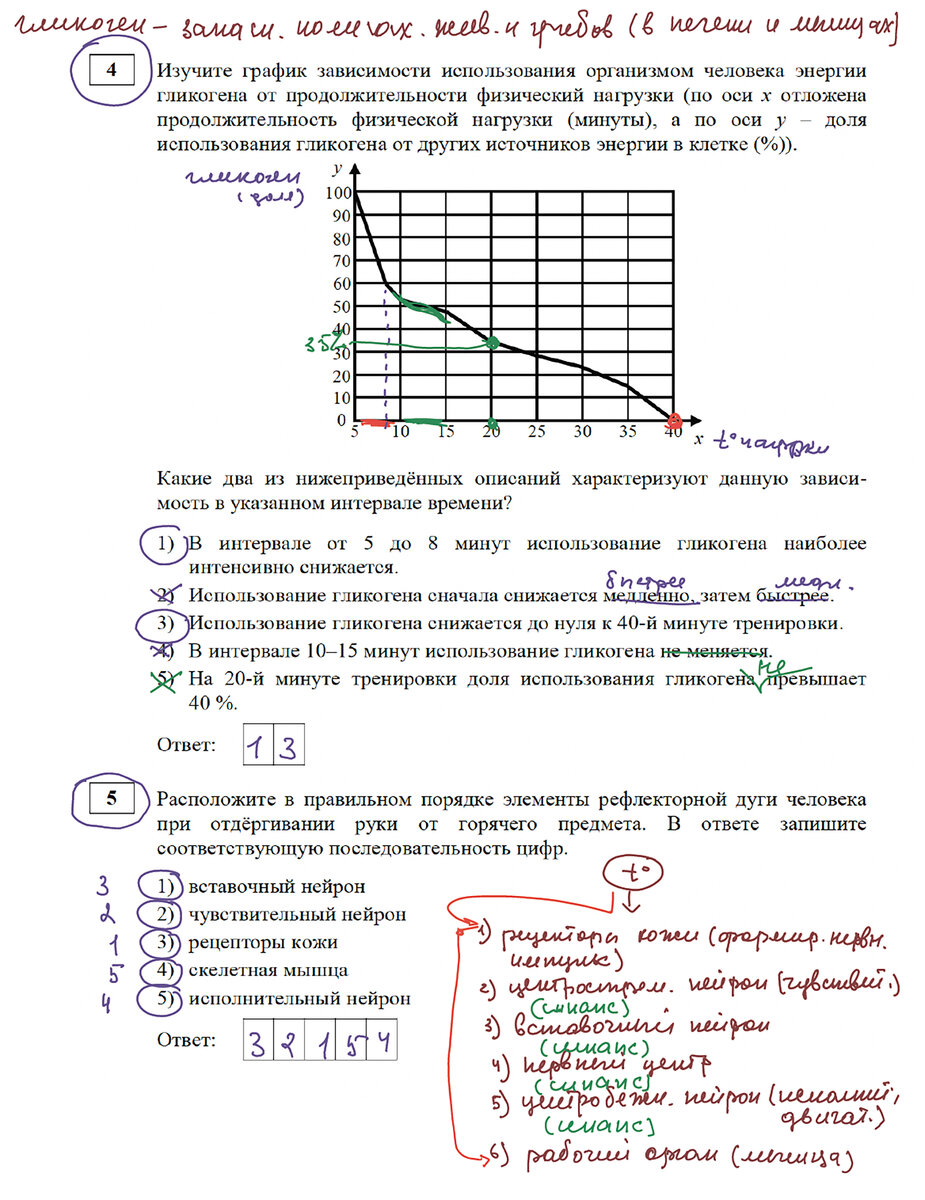 гликоген – запасн. полисах. жив. и грибов (в печени и мышцах)
4
Изучите график зависимости использования организмом человека энергии
гликогена от продолжительности физический нагрузки (по оси x отложена
продолжительность физической нагрузки (минуты), а по оси y – доля
использования гликогена от других источников энергии в клетке (%)).
гликоген
(доля)
y
100
90
80
70
60
50
40
35%
30
20
10
0
5 10 20 25 30 35 40 x
t° нагрузки
Какие два из нижеприведённых описаний характеризуют данную зависи-
мость в указанном интервале времени?
1) В интервале от 5 до 8 минут использование гликогена наиболее
интенсивно снижается.
быстрее медл.
2) Использование гликогена сначала снижается медленно, затем быстрее.
3) Использование гликогена снижается до нуля к 40-й минуте тренировки.
4) В интервале 10–15 минут использование гликогена не меняется.
не
5) На 20-й минуте тренировки доля использования гликогена превышает
40 %.
Ответ: 1 3
5
Расположите в правильном порядке элементы рефлекторной дуги человека
при отдёргивании руки от горячего предмета. В ответе запишите
соответствующую последовательность цифр.
3 1) вставочный нейрон
2 2) чувствительный нейрон
1 3) рецепторы кожи
5 4) скелетная мышца
4 5) исполнительный нейрон
Ответ: 3 2 1 5 4
t°
1) рецепторы кожи (формир. нервн.
импульс)
2) центрострем. нейрон (чувствит.)
(синапс)
3) вставочный нейрон
(синапс)
4) нервный центр
(синапс)
5) центробежн. нейрон (исполнит.,
двигат.)
(синапс)
6) рабочий орган (мышца)